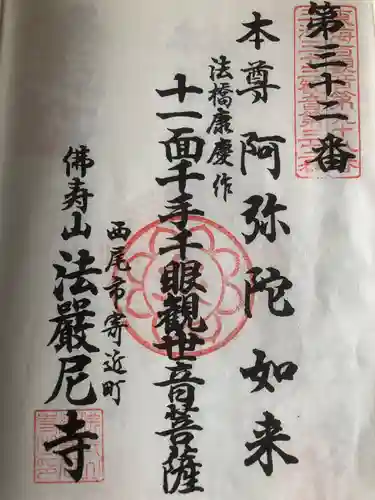 第三十二番
本尊 阿弥陀如来
法橋康慶作
十一面千手千眼観世音菩薩
西尾市寄近町
佛寿山 法嚴尼寺